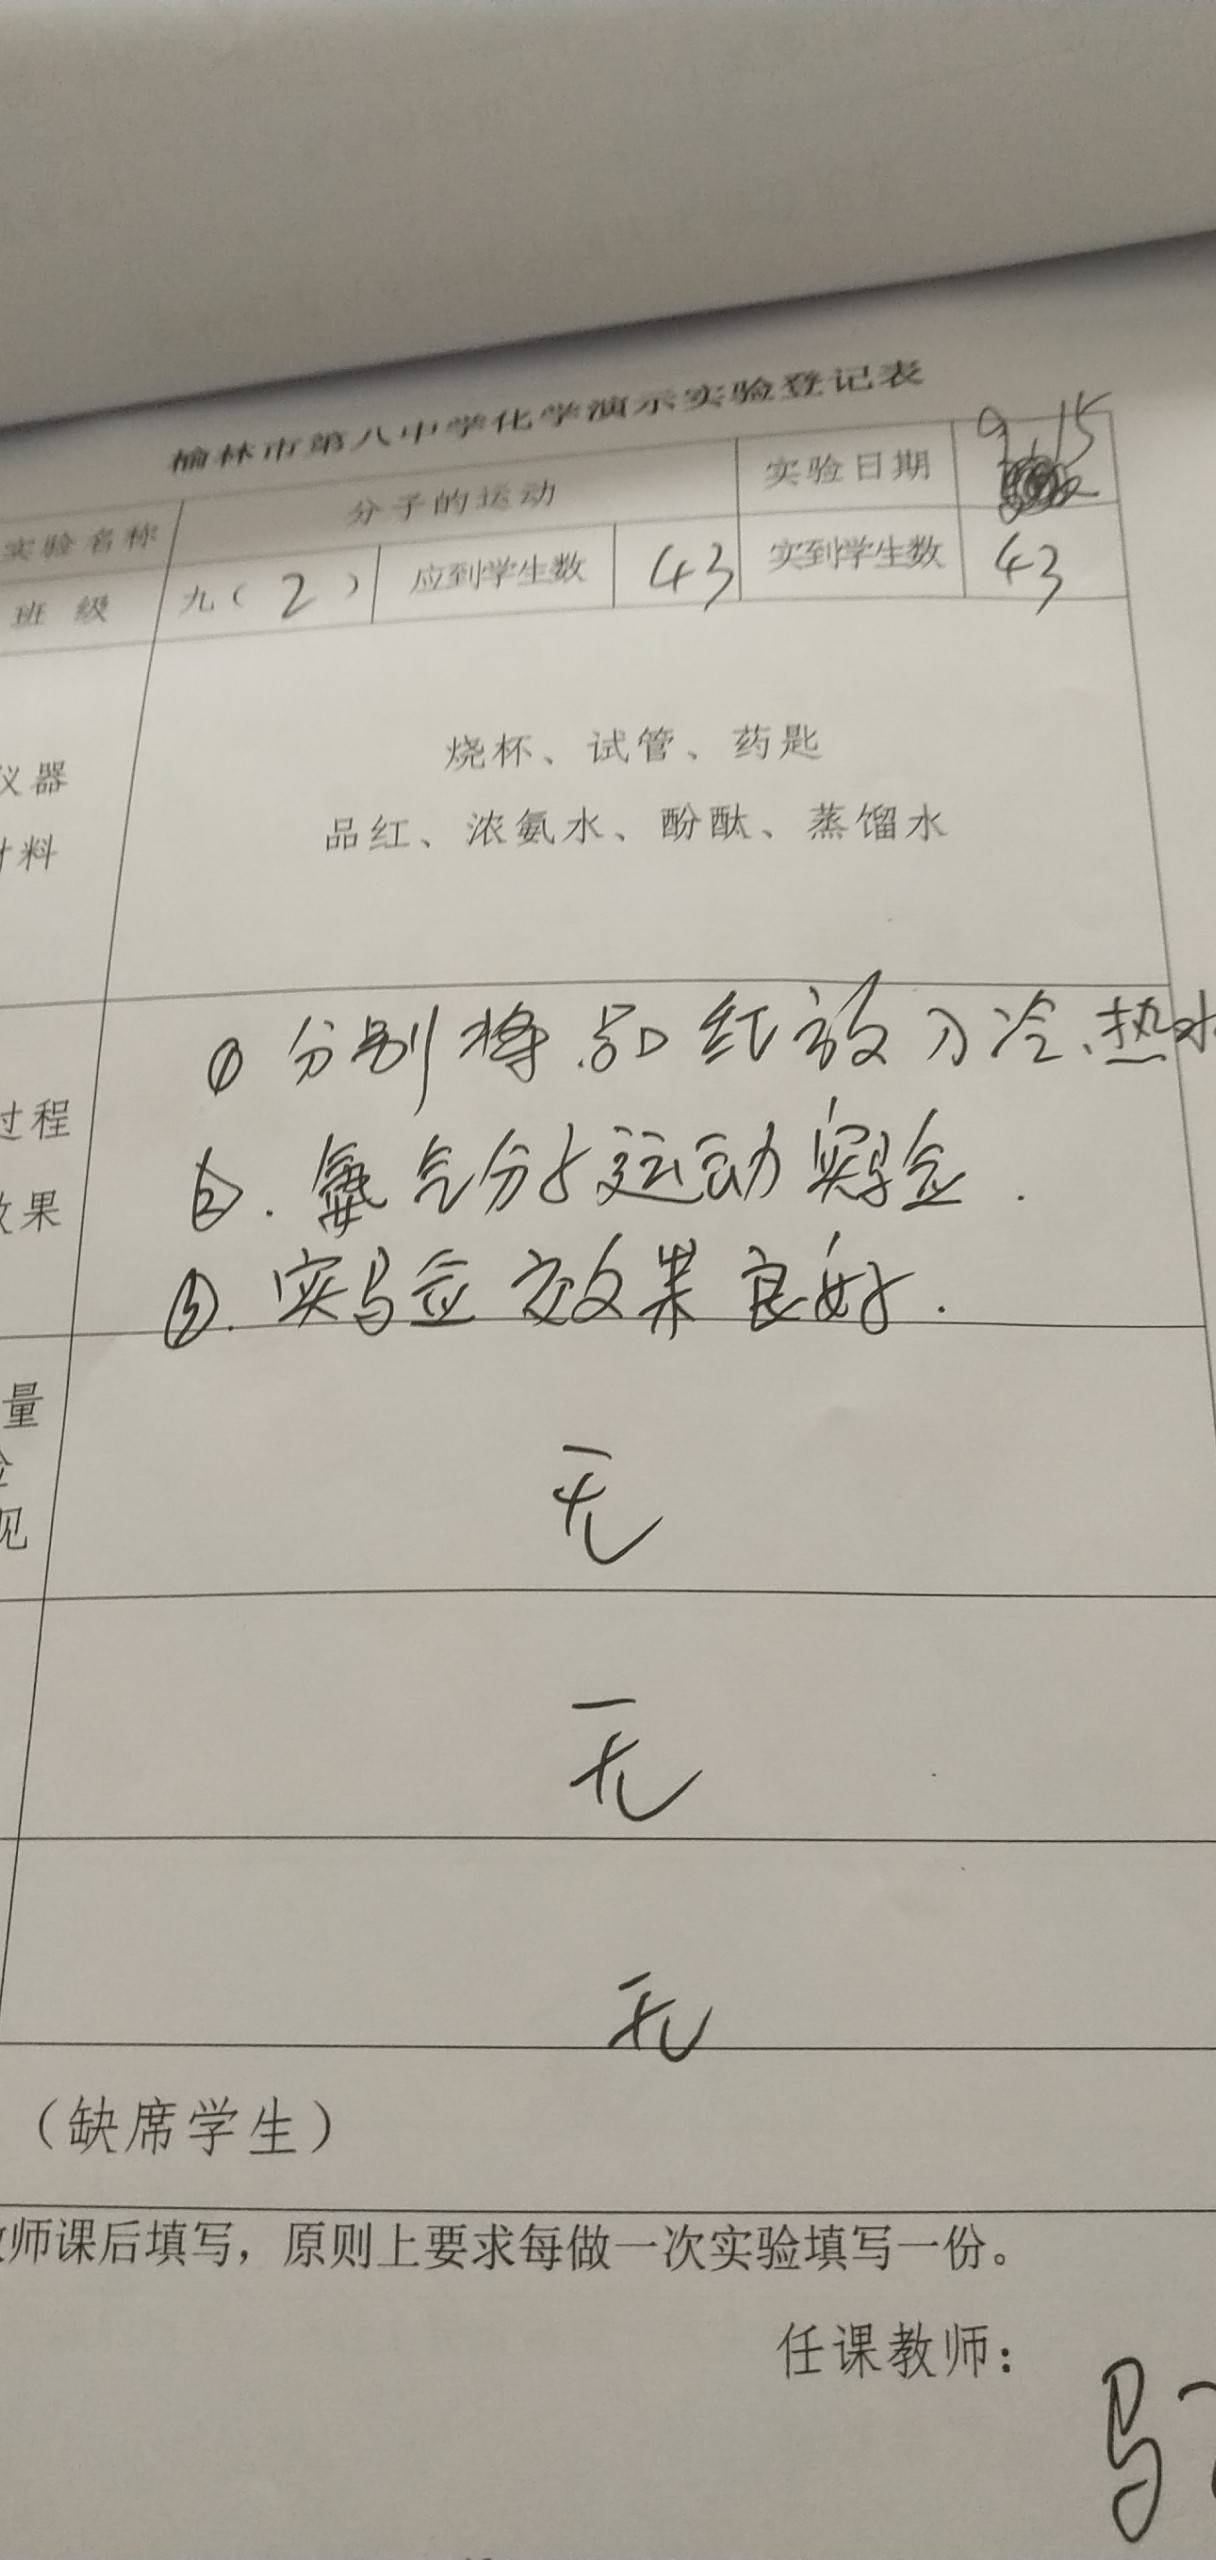 榆林市第八中学化学演示实验登记表
实验名称 分子的运动 实验日期 9.15
班 级 九（2） 应到学生数 43 实到学生数 43
仪器 烧杯、试管、药匙
材料 品红、浓氨水、酚酞、蒸馏水
① 分别将品红放入冷、热水
过程
②. 氨气分子运动实验.
效果
③. 实验效果良好.
量
见
无
无
无
（缺席学生）
教师课后填写，原则上要求每做一次实验填写一份。
任课教师：